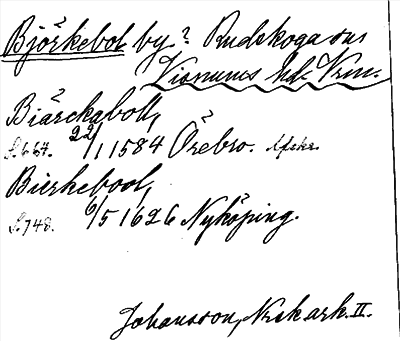 Björkebol by? Rudskoga sn
Visnums hd. Vrm.
Biärckaboll,
S. 667. 22/1 1584 Örebro. Afskr.
Bierkebool,
S. 748. 6/5 1626 Nyköping.
Johansson, Nrikark. II.